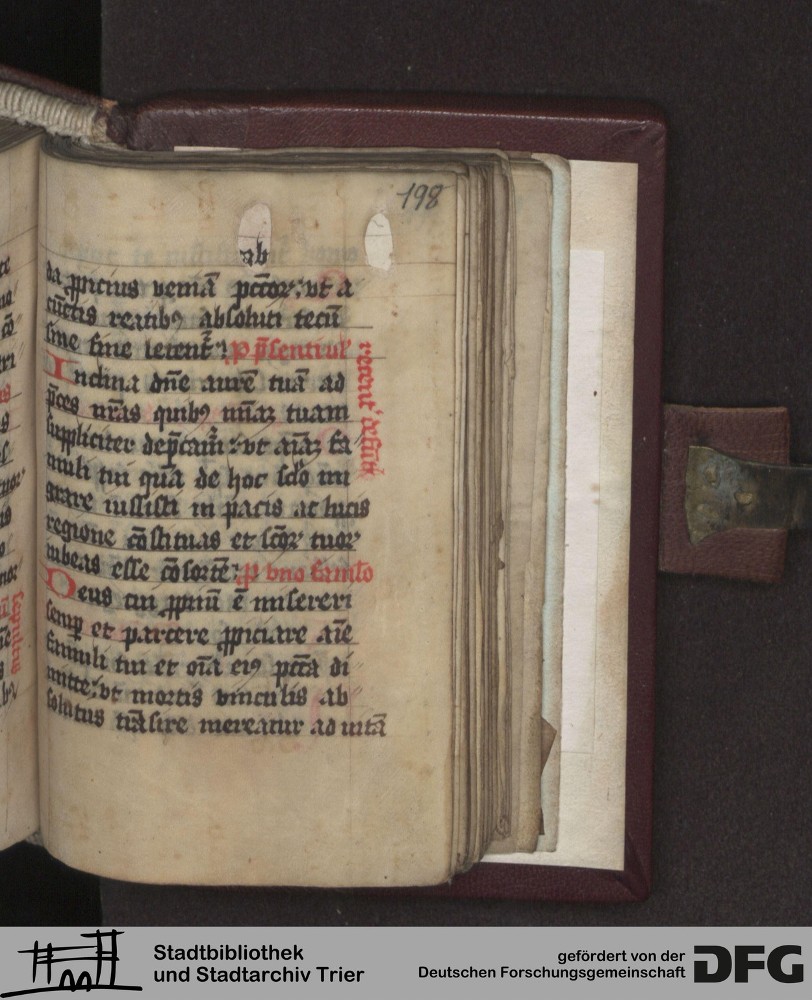 198
ab
da ꝓpicius veniā pccōꝝ: vt a
cūctis reatibꝰ absoluti tecū
sine fine letent᷑: p p̄senti vl'
Inclina dn̄e aurē tuā ad
p̄ces nr̄as quibꝰ mīaꝫ tuam
suppliciter dep̄cam᷑: vt aīaꝫ fa
muli tui quā de hoc sclo mi
grare iussisti in pacis ac lucis
regione cōstituas et scōꝝ tuoꝝ
iubeas esse cōsortē: p uno famlo
Deus cui ꝓpriū ē misereri
semꝑ et parcere ꝓpiciare aīe
famuli tui et oīa eiꝰ pctā di
mitte: vt mortis vinculis ab
solutus trāsire mereatur ad uitā
Stadtbibliothek
und Stadtarchiv Trier
gefördert von der
Deutschen Forschungsgemeinschaft
DFG